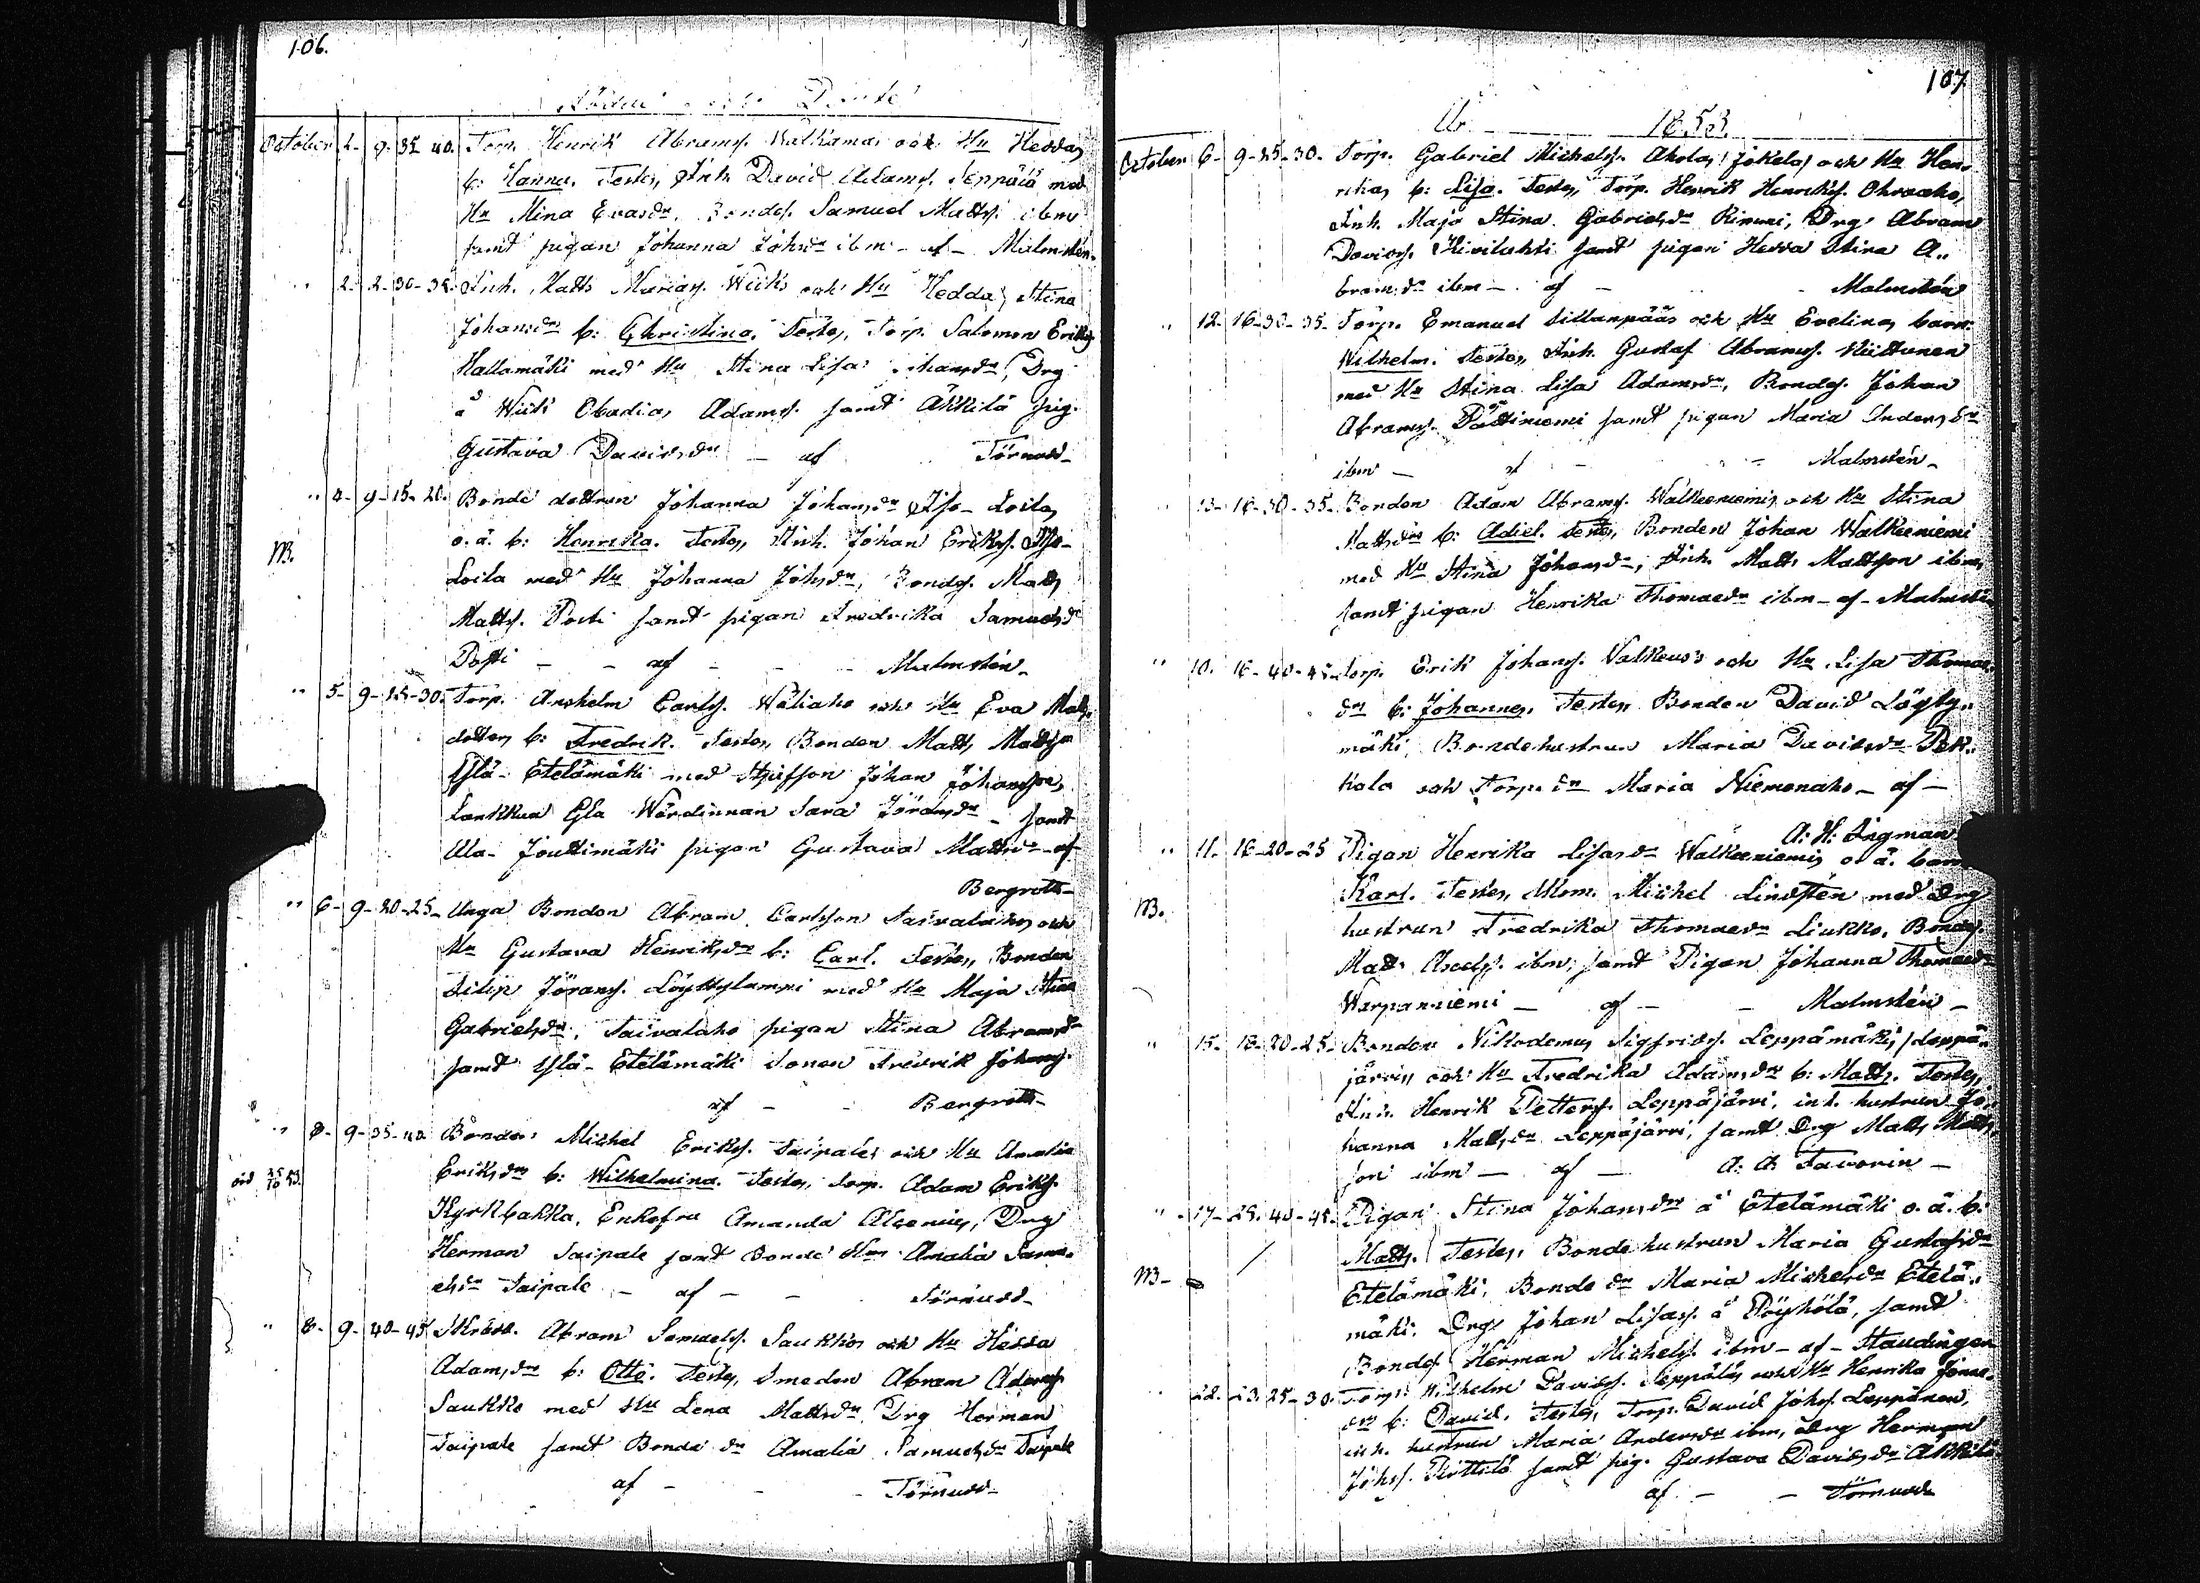 106.
October 2. 9. 35 40. Torp. Henrik Abramss. Walkama, och Hu Hedda,
b: Hanna. Testes, Inh. David Adamss. Seppälä med
Hu Mina Evasdr. Bondes. Samuel Mattss. ibm
samt pigan Johanna Johsdr ibm - af - Malmstén.
" 2. 2. 30-35. Inh. Matts Mariass. Wiik, och Hu Hedda Stina
Johansdr b: Christina. Testes, Torp. Salomon Erikss.
Hallamäki med Hu Stina Lisa Johansdr, Drg
å Wiik Obadias Adamss. samt Äkkilä pig.
Gustava Davidsdr - af Törnudd-
" 4- 9-15-20. Bonde dottren Johanna Johansdr Iso-Loila,
o.ä. b: Henrika. Testes, Inh. Johan Erikss. Iso-
NB.
Loila med Hu Johanna Johsdr, Bondes. Matts
Mattss. Posti samt pigan Fredrika Samuelsdr
Posti - - af - - Malmstén-
" 5- 9-25-30. Torp. Anshelm Carlss. Wäliaho och Hu Eva Matts
dotter, b: Fredrik. Testes, Bonden Matts Mattsson
Ylä-Etelämäki med Styfson Johan Johansson,
Lankkua Gla Wärdinnan Sara Jöransdr - samt
Ala-Jouttimäki pigan Gustava Mattsdr - af
Bergroth-
" 6- 9-20-25- Unga Bonden Abram Carlsson Taivalaho, och
Hu Gustava Henriksdr b: Carl. Testes, Bonden
Filip Jöranss. Löyttylampi med Hu Maja Stina
Gabrielsdr, Taivalaho pigan Stina Abramsdr
samt Ylä-Etelämäki Sonen Fredrik Johanss.
af - - Bergroth-
" 8- 9-35-40 Bonden Michel Erikss. Taipale, och Hu Amalia
död 25/10 53.
Eriksdr b: Wilhelmina. Testes, Torp. Adam Erikss.
Kyrkbakka, Enkefru Amanda Alcenius, Drg
Herman Taipale samt Bonde Hu Amalia Samu-
elsdr Taipale - af - - Törnudd-
" 8- 9-40-45 Abram Samuelss. Saukko, och Hu Hedda
Adamsdr b: Otto. Testes, Smeden Abram Adamss.
Saukko med Hu Lena Mattsdr, Drg Herman
Taipale samt Bonde dr Amalia Samuelsdr Taipale
af - - - Törnudd-
107.
1853.
October 6- 9-25-30. Torp. Gabriel Michelss. Ahola, Jokela, och Hu Hen-
rika, b: Lisa. Testes, Torp. Henrik Henrikss. Ohraaho,
Inh. Maja Stina Gabrielsdr Rinnei, Drg Abram
Davidss. Kivilahti samt pigan Hedda Stina A-
bramsdr ibm - af - Malmstén
" 12. 16-30-35- Torp. Emanuel Sillanpää, och Hu Evelina, barn:
Wilhelm. Testes, Inh. Gustaf Abramss. Niittunen
med Hu Stina Lisa Adamsdr, Bondes. Johan
Abramss. Pättiniemi samt pigan Maria Andersdr
ibm - af - - Malmstén-
" 13- 16-30-35- Bonden Adam Abramss. Walkeeniemi, och Hu Stina
Mattsdr b: Adiel. Testes, Bonden Johan Walkeeniemi
med Hu Stina Johansdr, Inh. Matts Mattsson ibm,
samt pigan Henrika Thomaedr ibm - af - Malmstén
" 10. 16-40-45- Torp. Erik Johanss. Valkeus's och Hu Lisa Thomae
dr b: Johannes, Testes, Bonden David Löyty-
mäki, Bondehustrun Maria Davidsdr Pek-
kala och Torp. dr Maria Niemenaho - af -
A: H: Ingman
" 11. 16-20-25 Pigan Henrika Lisasdr Walkeeniemi, o ä. barn
Karl. Testes, Skom. Michel Lindstén med Drg
NB.
hustrun Fredrika Thomaedr Liukko, Bondes.
Matts Axelss. ibm, samt Pigan Johanna Thomaedr
Warpanniemi - af - - Malmstén -
" 15- 18-20-25- Bonden Nikodemus Sigfridss. Leppämäki, Leppä-
järvi, och Hu Fredrika Adamsdr b: Matts. Testes,
Inh. Henrik Petterss. Leppäjärvi, inh. hustrun Jo-
hanna Mattsdr Leppäjärvi, samt Drg Matts Matts-
son ibm - af - A: A: Favorin -
" 17- 25. 40-45. Pigan Stina Johansdr å Etelämäki o. ä. b:
Matts. Testes, Bonde hustrun Maria Gustafsdr
NB-
Etelämäki, Bonde dr Maria Michelsdr Etelä-
mäki, Drg Johan Lisass. å Pöyhölä, samt
Bondes. Herman Michelss. ibm - af - Staudinger
" 22. 23. 25-30. Torp. Wilhelm Davidss. Seppälä, och Hu Henrika Jonae-
dr b: David. Testes, Torp. David Johss. Leppänen,
inh. hustrun Maria Andersdr ibm, Drg Herman
Johss. Perttilä samt pig. Gustava Davidsdr Äkkilä
af - - Törnudd